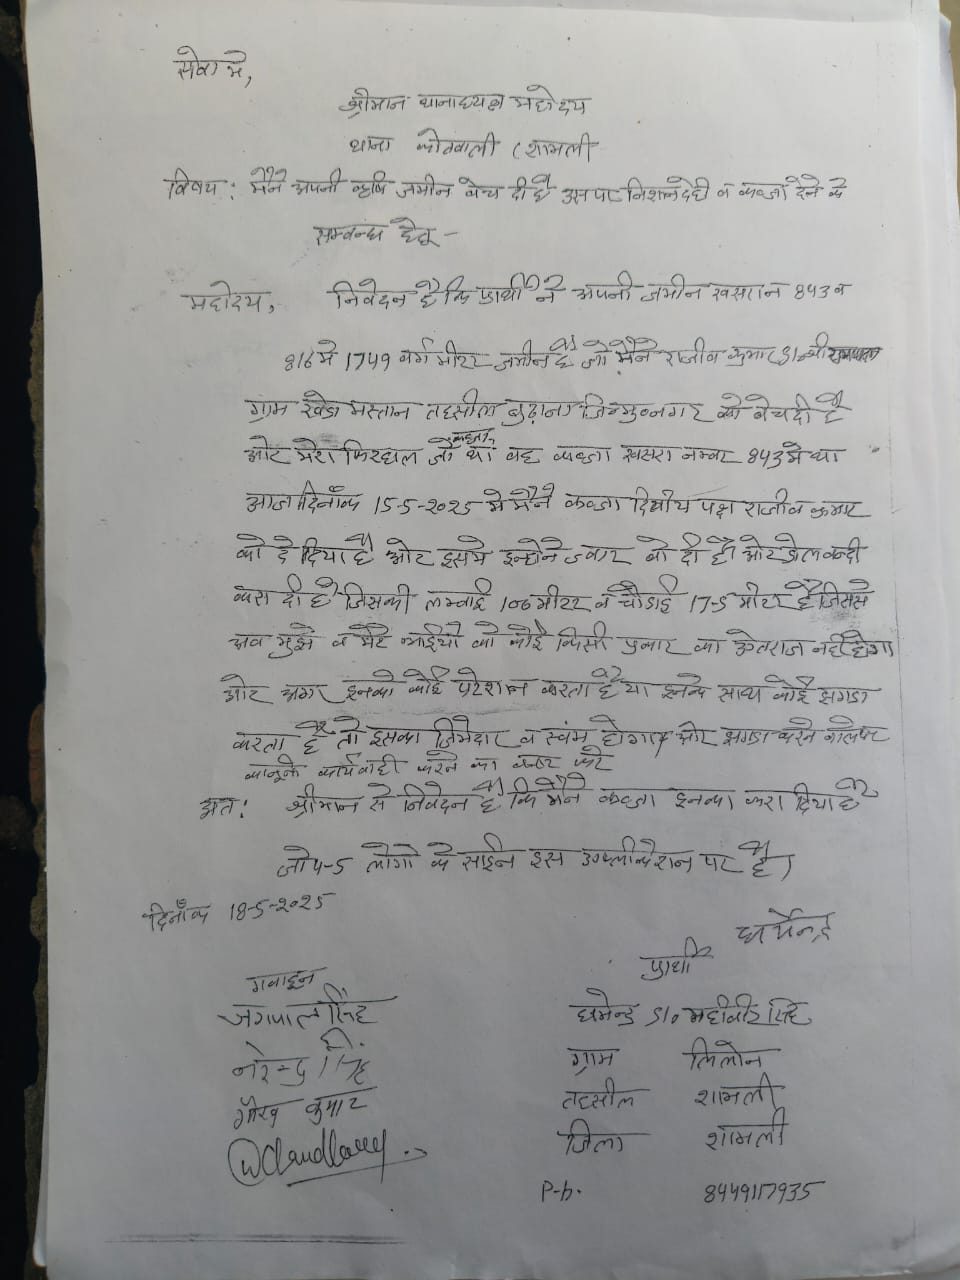 सेवा मे,
श्रीमान थानाध्यक्ष महोदय
थाना कोतवाली (शामली
विषय: मैने अपनी कृषि जमीन बेच दी है उस पर निशानदेही व कब्जा देने के
सम्बन्ध हेतू -
महोदय, निवेदन है कि प्रार्थी ने अपनी जमीन खसरा न 843 व
816 मे 1749 वर्ग मीटर जमीन है जो मैने राजीव कुमार S/० श्री रामपाल
ग्राम खेडा मस्तान तहसील बुढ़ाना जि० मु०नगर को बेच दी है
ओर मेरा फिरहाल जो कब्जा था वह कब्जा खसरा नम्बर 843 मे था
आज दिनाँक 15-5-2025 मे मैने कब्जा द्वितीय पक्ष राजीव कुमार
को दे दिया है ओर इसमे इन्होने ज्वार बो दी है ओर डोलबन्दी
करा दी है जिसकी लम्बाई 106 मीटर व चौडाई 17-5 मीटर है जिससे
अब मुझे व मेरे भाईयो को कोई किसी प्रकार का ऐतराज नही होगा
ओर अगर इनको कोई परेशान करता है या इनके साथ कोई झगडा
करता है तो इसका जिमेदार व स्वंम होगा ओर झगडा करने वाले पर
कानूनी कार्यवाही करने का कष्ट करे
अत: श्रीमान से निवेदन है कि मैने कब्जा इनका करा दिया है
जो 4-5 लोगो के साईन इस उप्लीकेशन पर है।
दिनाँक 18-5-2025
धर्मेन्द्र
प्रार्थी
गवाहन
जगपाल सिंह
धर्मेन्द्र S/० महावीर सिंह
ग्राम लिलोन
गौरव कुमार
तहसील शामली
जिला शामली
P-h. 8449117935